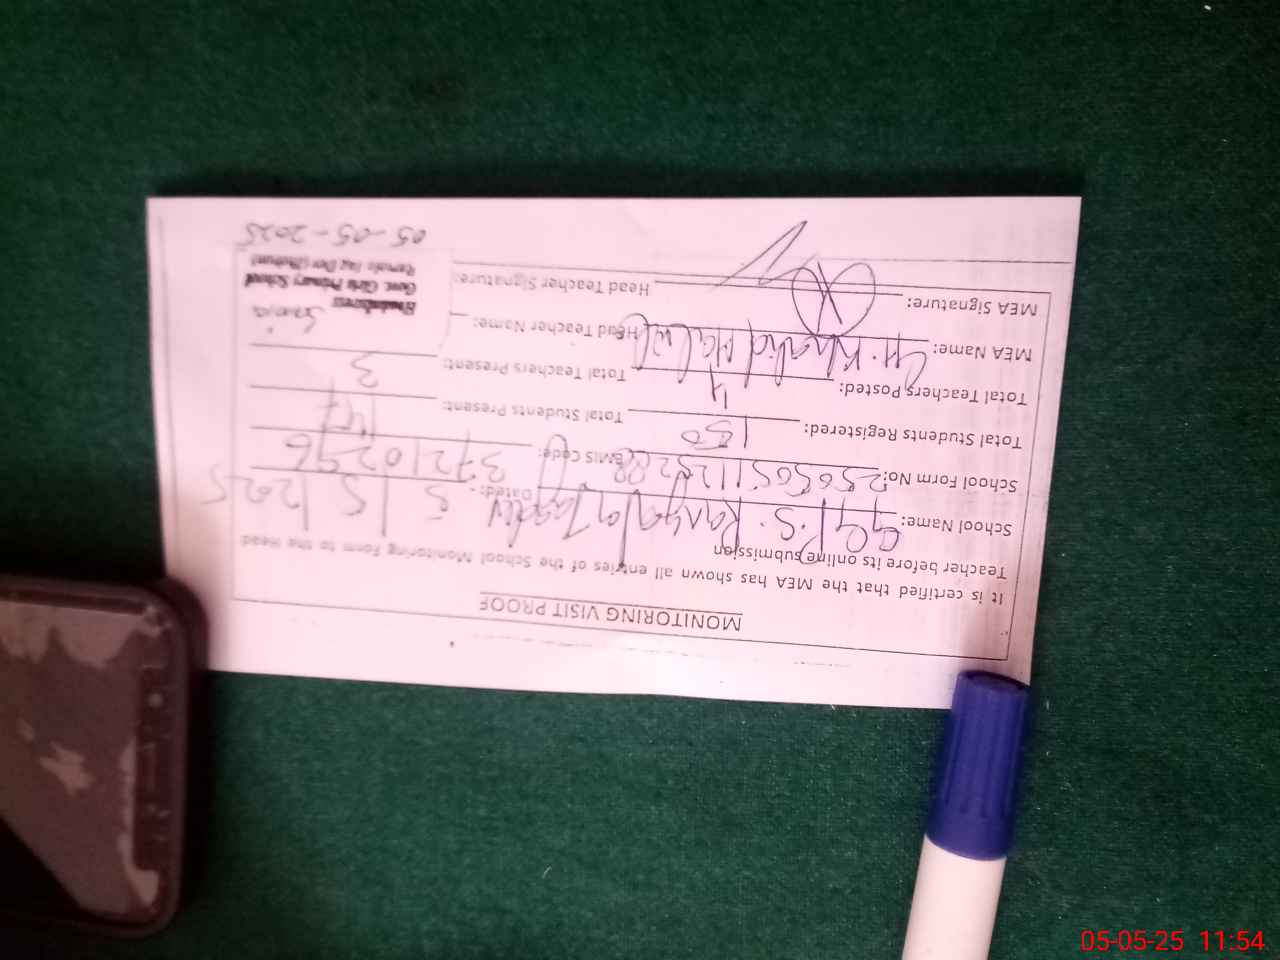 MONITORING VISIT PROOF
It is certified that the MEA has shown all entries of the School Monitoring Form to the Head
Teacher before its online submission
School Name: GGPS. Dated: 5/5/2025
School Form No: EMIS Code: 37210296
Total Students Registered: 150 Total Students Present: 147
Total Teachers Posted: 4 Total Teachers Present: 3
MEA Name: Khalid Head Teacher Name: Samia
MEA Signature: Head Teacher Signature:
Headmistress
Govt. Girls Primary School
05-05-2025
05-05-25 11:54